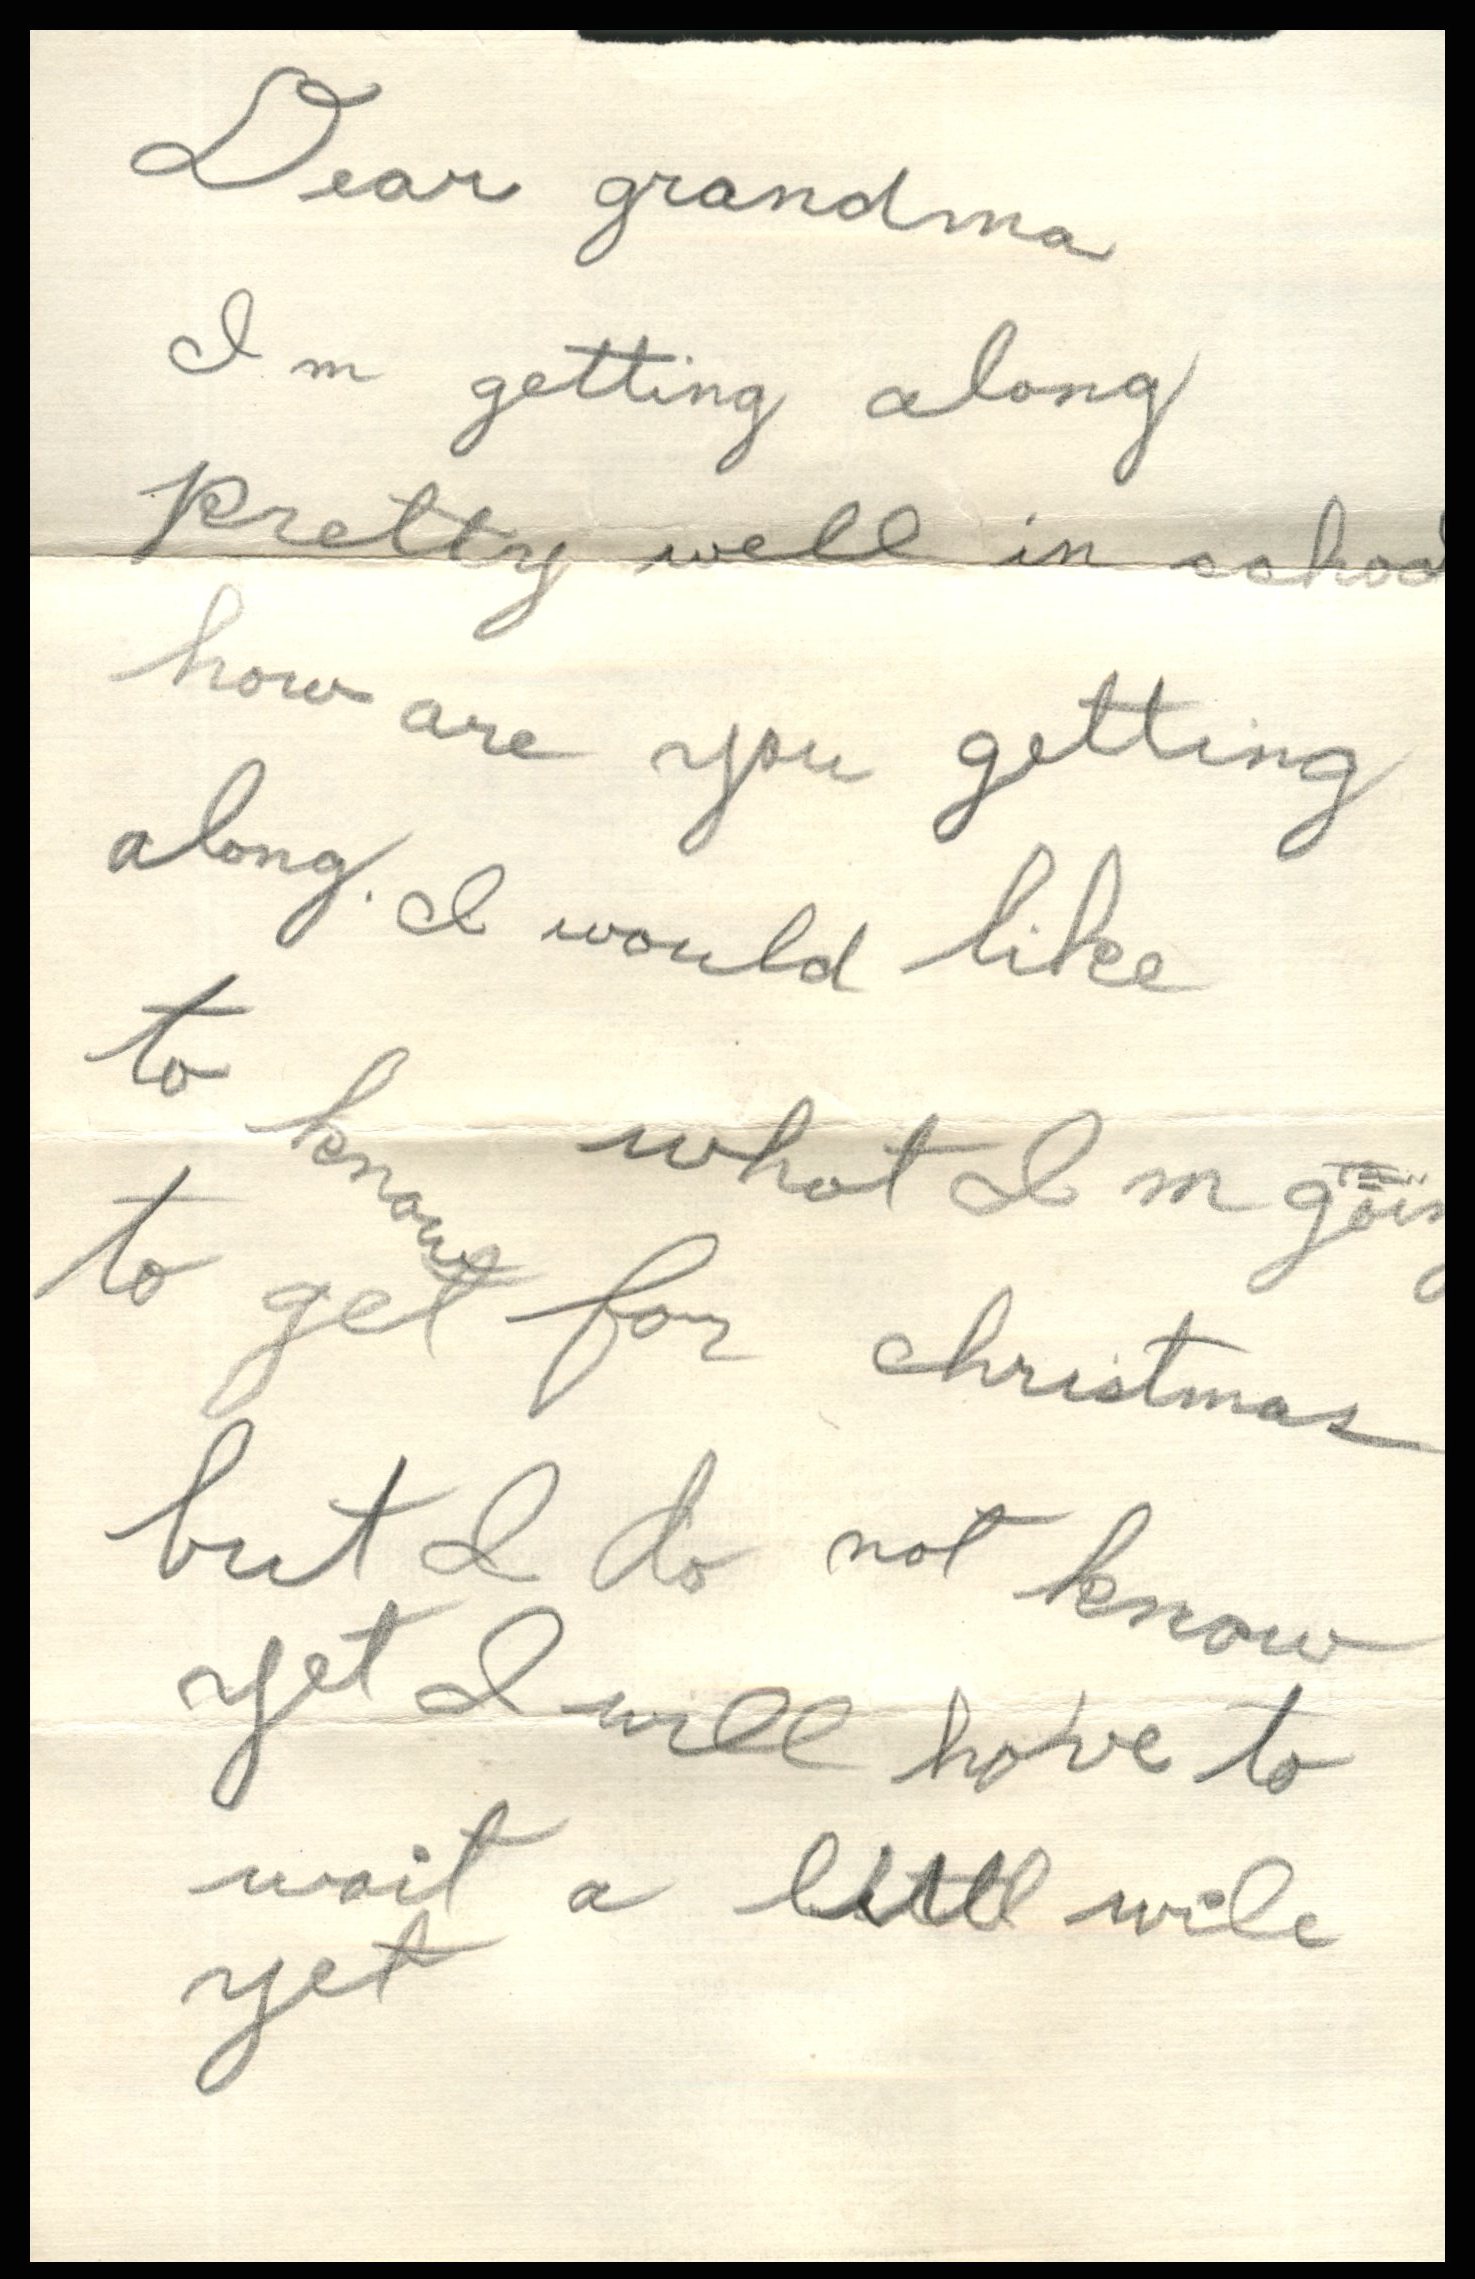 Dear grandma
I m getting along
pretty well in school
how are you getting
along. I would like
to know what I m going
to get for christmas
but I do not know
yet I will have to
wait a littel wile
yet